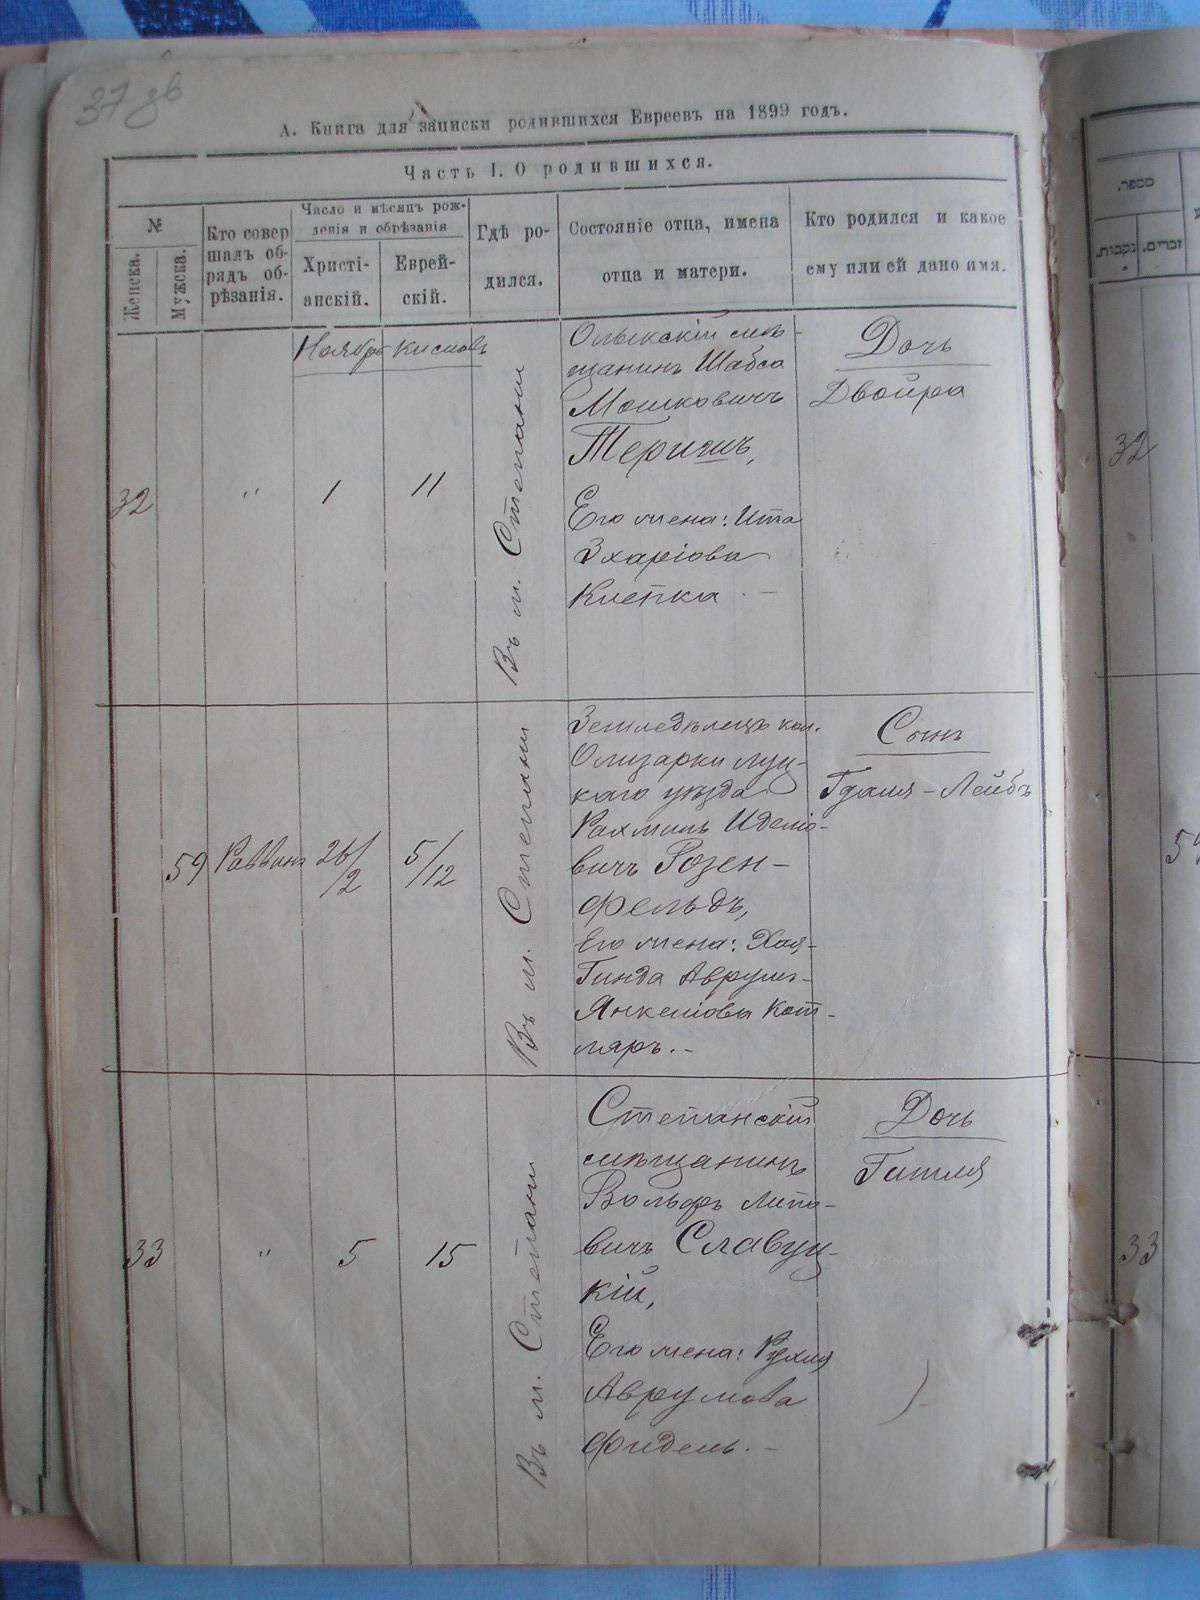 37 зв
А. Книга для записки родившихся Евреевъ на 1899 годъ.
Часть I. О родившихся.
№
Женска.
Мужска.
Кто совер
шалъ об-
рядъ об-
рѣзанія.
Число и мѣсяцъ рож-
денія и обрѣзанія
Христі-
анскій.
Еврей-
скій.
Гдѣ ро-
дился.
Состояніе отца, имена
отца и матери.
Кто родился и какое
ему или ей дано имя.
Ноябрь Кислевъ
32
"
1
11
Въ м. Степани
Олыкскій мѣ-
щанинъ Шабса
Мошковичъ
Теришъ,
Его жена: Ита
Зхаріова
Клепка. -
Дочь
Двойра
59
Раввинъ
26/2
5/12
Въ м. Степани
Земледѣлецъ кол.
Олизарки луц-
каго уѣзда
Рахмиль Иделіо-
вичъ Розен-
фельдъ,
Его жена: Хая-
Гинда Аврумъ-
Янкеліова Кот-
ляръ. -
Сынъ
Гдаля-Лейбъ
33
"
5
15
Въ м. Степани
Степанскій
мѣщанинъ
Вольфъ Липо-
вичъ Славуц-
кій,
Его жена: Рухля
Аврумова
Фидель. -
Дочь
Гитля
מספר.
נקבות.
זכרים.
32
33